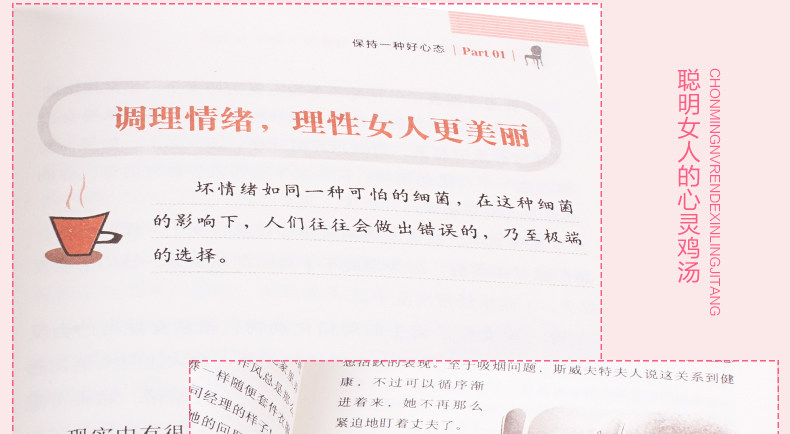 保持一种好心态 | Part 01 |
调理情绪，理性女人更美丽
坏情绪如同一种可怕的细菌，在这种细菌
的影响下，人们往往会做出错误的，乃至极端
的选择。
聪明女人的心灵鸡汤
CHONMINGNVRENDEXINLINGJITANG
想活跃的表现。至于吸烟问题，斯威夫特夫人说这关系到健
康，不过可以循序渐
进着来，她不再那么
紧迫地盯着丈夫了。
作风总是那么
一样随便套件衣
司经理的样子
他的问
现实中有很